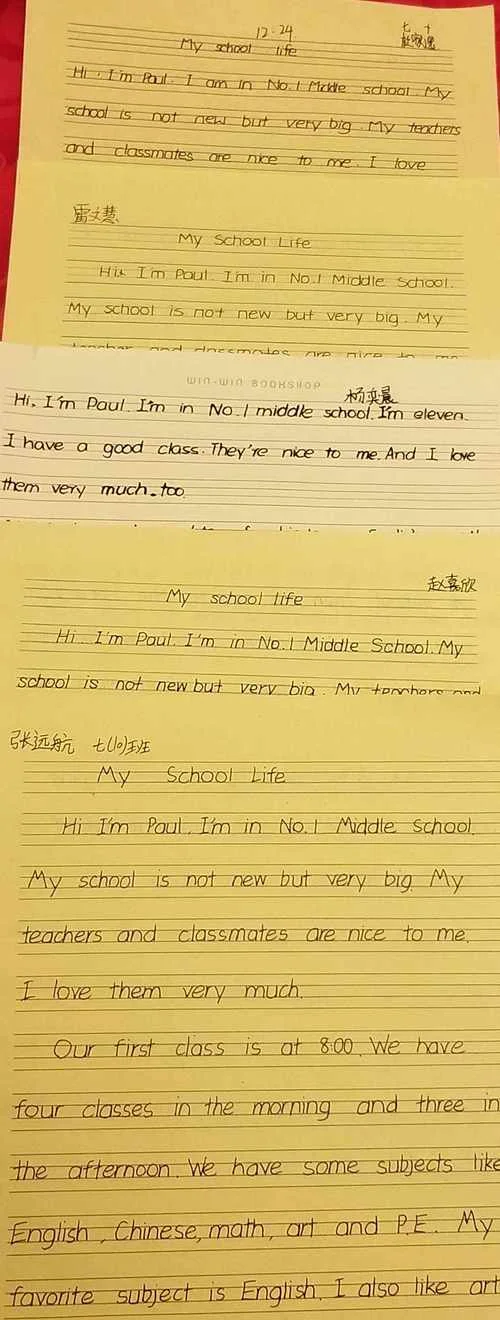 12.24
七 十
My school life
Hi, I'm Paul. I am in No.1 Middle school. My
school is not new but very big. My teachers
and classmates are nice to me. I love
雷文慧
My School Life
Hi, I'm Paul. I'm in No.1 Middle School.
My school is not new but very big. My
teacher and classmates are nice to me
WIN-WIN BOOKSHOP
杨奕晨
Hi, I'm Paul. I'm in No.1 middle school. I'm eleven.
I have a good class. They're nice to me. And I love
them very much.too.
赵嘉欣
My school life
Hi. I'm Paul. I'm in No.1 Middle School. My
school is not new but very big. My teachers and
张远航 七(10)班
My School Life
Hi I'm Paul. I'm in No.1 Middle School.
My school is not new but very big. My
teachers and classmates are nice to me.
I love them very much.
Our first class is at 8:00. We have
four classes in the morning and three in
the afternoon. We have some subjects like
English, Chinese, math, art and P.E. My
favorite subject is English. I also like art